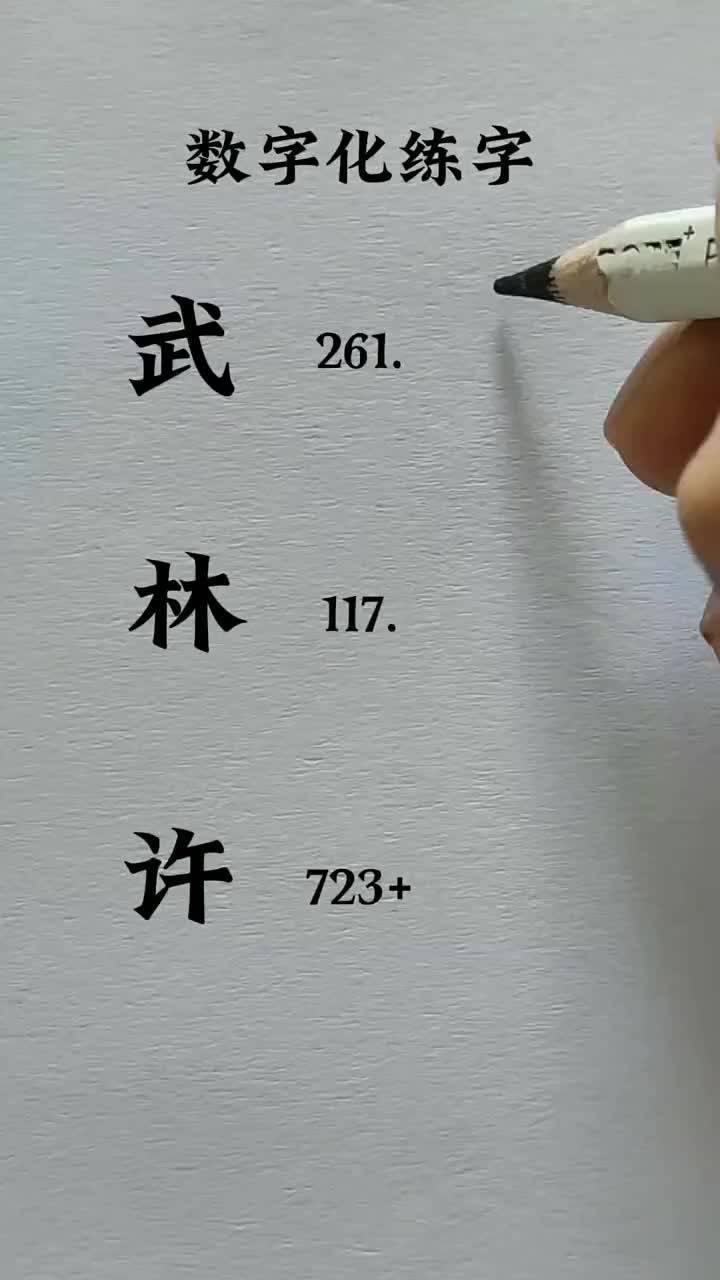 数字化练字
武 261.
林 117.
许 723+